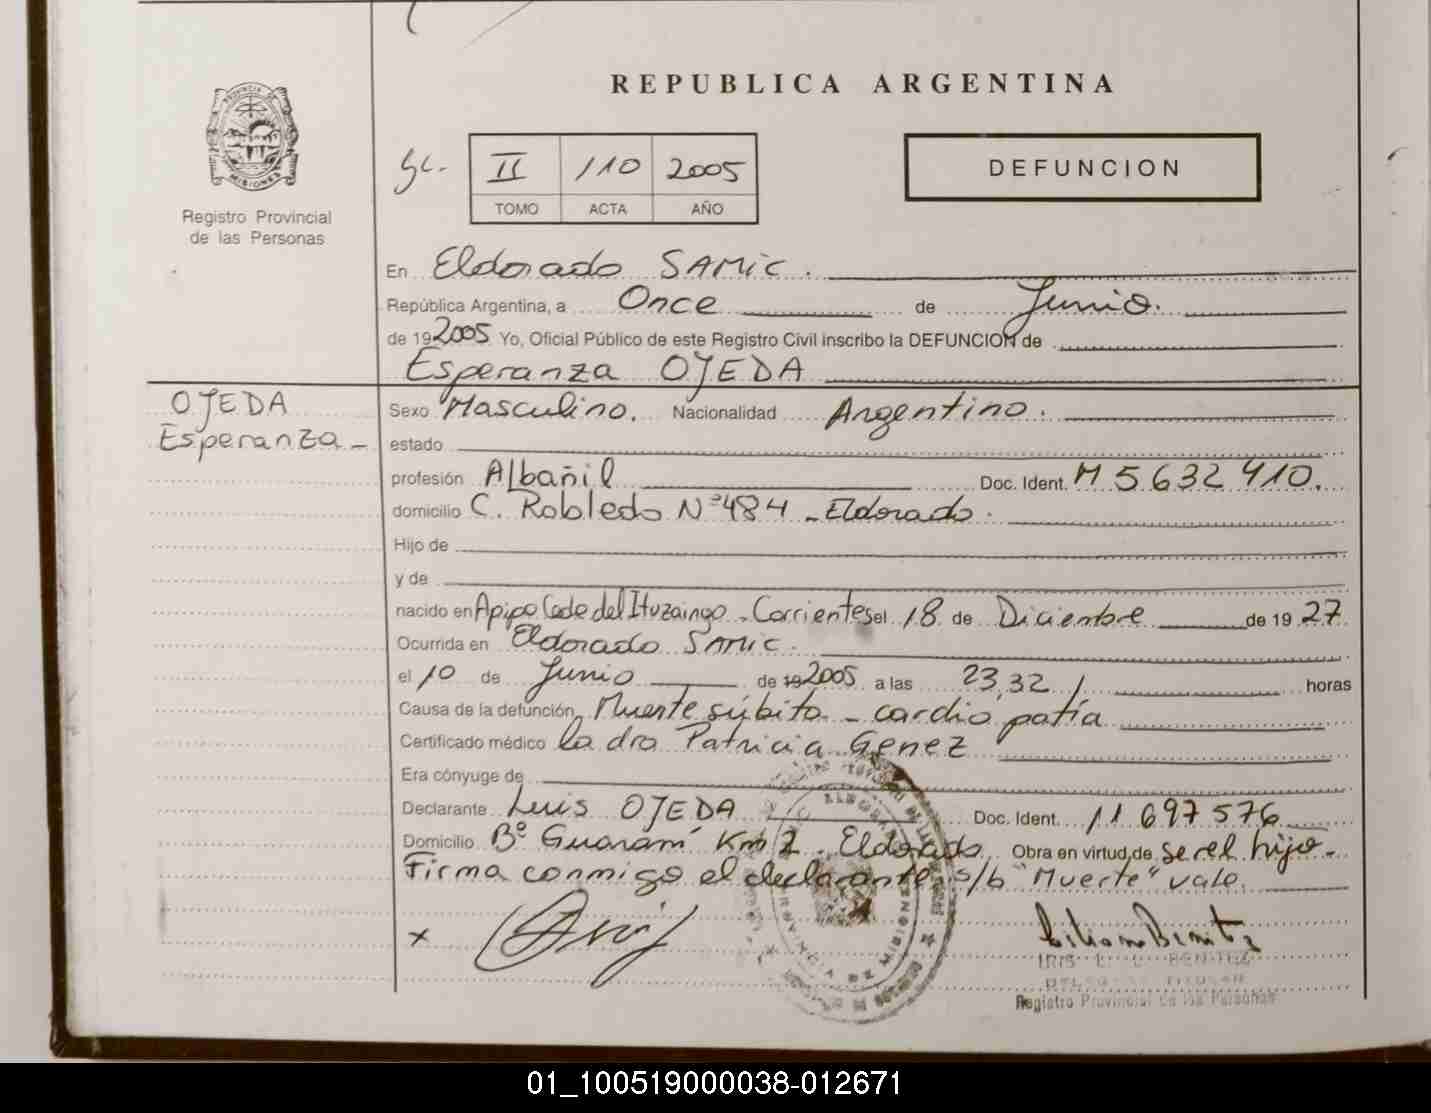 REPUBLICA ARGENTINA
PROVINCIA DE
MISIONES
Registro Provincial
de las Personas
II 110 2005
TOMO ACTA AÑO
DEFUNCION
En Eldorado SAMIC.
República Argentina, a Once de Junio.
de 19 2005 Yo, Oficial Público de este Registro Civil inscribo la DEFUNCION de
Esperanza OJEDA
OJEDA
Esperanza -
Sexo Masculino. Nacionalidad Argentino.
estado
profesión Albañil Doc. Ident. M 5632410.
domicilio C. Robledo Nº 484 - Eldorado.
Hijo de
y de
nacido en Apipo Cede del Ituzaingo - Corrientes el 18 de Diciembre de 19 27
Ocurrida en Eldorado SAMIC.
el 10 de Junio de 19 2005 a las 23,32 / horas
Causa de la defunción Muerte súbita - cardio patía
Certificado médico la dra Patricia Genez
Era cónyuge de
Declarante Luis OJEDA Doc. Ident. 11 697 576
Domicilio Bº Guaraní Km 2. Eldorado Obra en virtud de ser el hijo.
Firma conmigo el declarante s/b "Muerte" vale.
x
Lilian Benitez
IRIS L. L. BENITEZ
DELEGADA TITULAR
Registro Provincial de las Personas
01_100519000038-012671